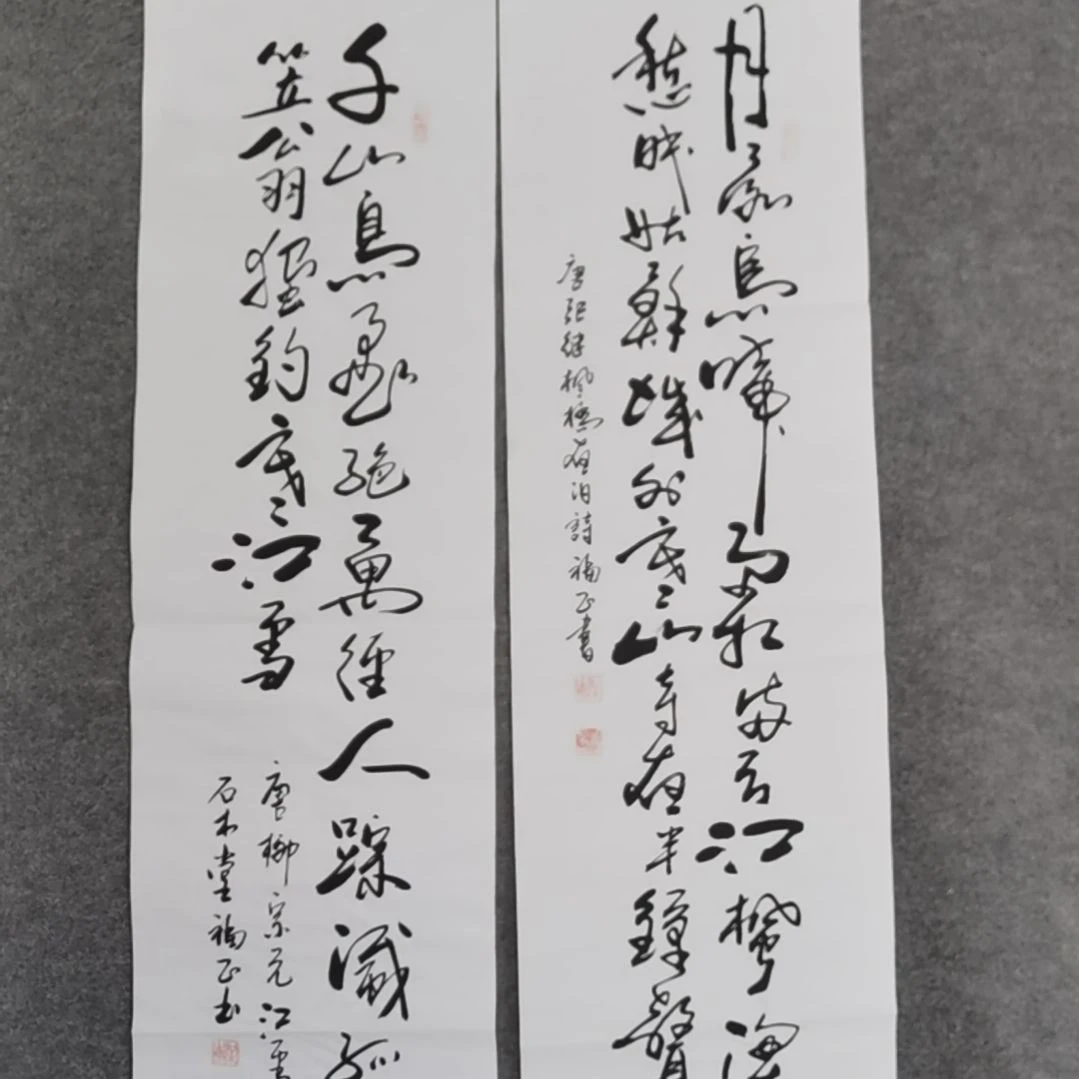 月落烏啼霜滿天江楓漁
愁眠姑蘇城外寒山寺夜半鐘聲
唐張繼楓橋夜泊詩福正書
千山鳥飛絕萬徑人蹤滅孤
笠翁獨釣寒江雪
唐柳宗元江雪
石木堂福正书